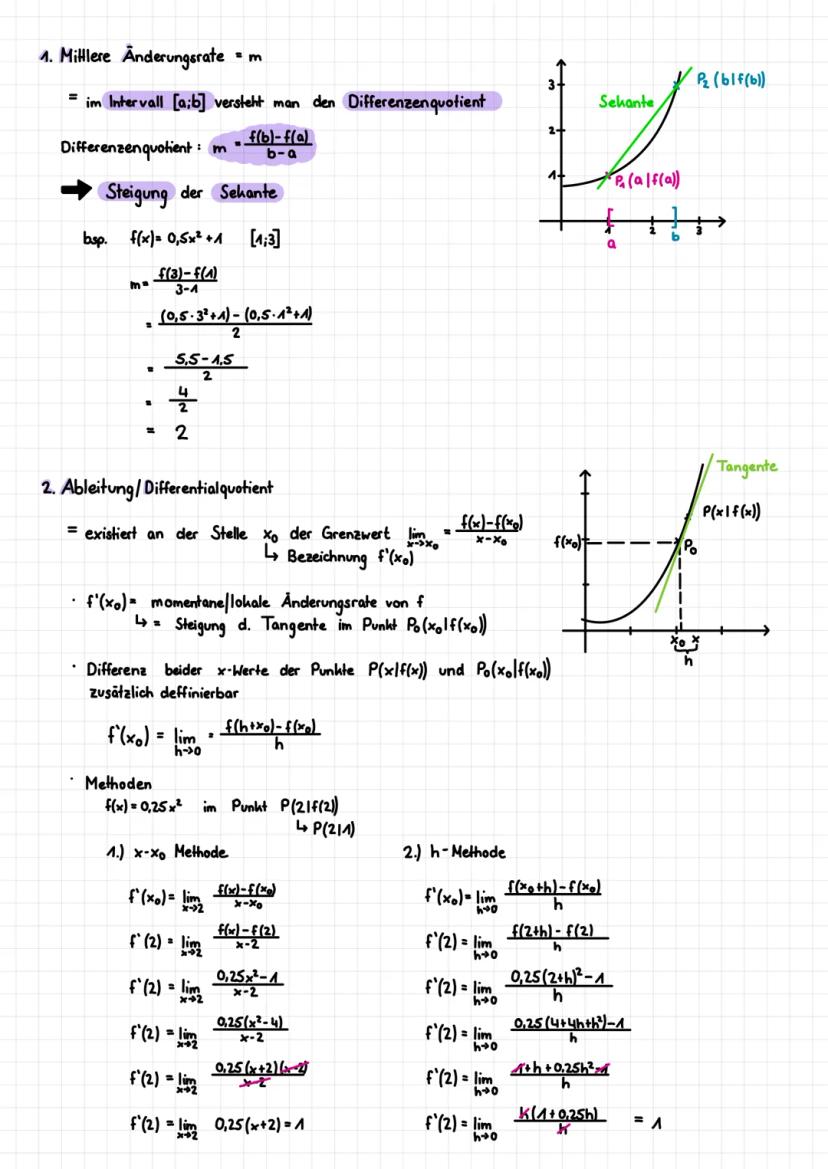 1. Mittlere Änderungsrate = m
= im Intervall [a;b] versteht man den Differenzenquotient
Differenzenquotient: m = f(b)-f(a) / b-a
→ Steigung der Sekante
bsp. f(x) = 0,5x² + 1 [1;3]
m = f(3)-f(1) / 3-1
= (0,5·3²+1) - (0,5·1²+1) / 2
= 5,5-1,5 / 2
= 4 / 2
= 2
3
2
1
Sekante
P₂ (b|f(b))
P₁ (a|f(a))
1 2 3
a b
2. Ableitung/Differentialquotient
= existiert an der Stelle x₀ der Grenzwert lim x→x₀ = f(x)-f(x₀) / x-x₀
↳ Bezeichnung f'(x₀)
· f'(x₀) = momentane/lokale Änderungsrate von f
↳ = Steigung d. Tangente im Punkt P₀(x₀|f(x₀))
· Differenz beider x-Werte der Punkte P(x|f(x)) und P₀(x₀|f(x₀))
zusätzlich deffinierbar
f'(x₀) = lim h→0 = f(h+x₀)-f(x₀) / h
Tangente
P(x|f(x))
f(x₀)
P₀
x₀ x
h
· Methoden
f(x) = 0,25x² im Punkt P(2|f(2))
↳ P(2|1)
1.) x-x₀ Methode
f'(x₀) = lim x→2 f(x)-f(x₀) / x-x₀
f'(2) = lim x→2 f(x)-f(2) / x-2
f'(2) = lim x→2 0,25x²-1 / x-2
f'(2) = lim x→2 0,25(x²-4) / x-2
f'(2) = lim x→2 0,25(x+2)(x-2) / x-2
f'(2) = lim x→2 0,25(x+2) = 1
2.) h-Methode
f'(x₀) = lim h→0 f(x₀+h)-f(x₀) / h
f'(2) = lim h→0 f(2+h)-f(2) / h
f'(2) = lim h→0 0,25(2+h)²-1 / h
f'(2) = lim h→0 0,25(4+4h+h²)-1 / h
f'(2) = lim h→0 1+h+0,25h²-1 / h
f'(2) = lim h→0 h(1+0,25h) / h = 1